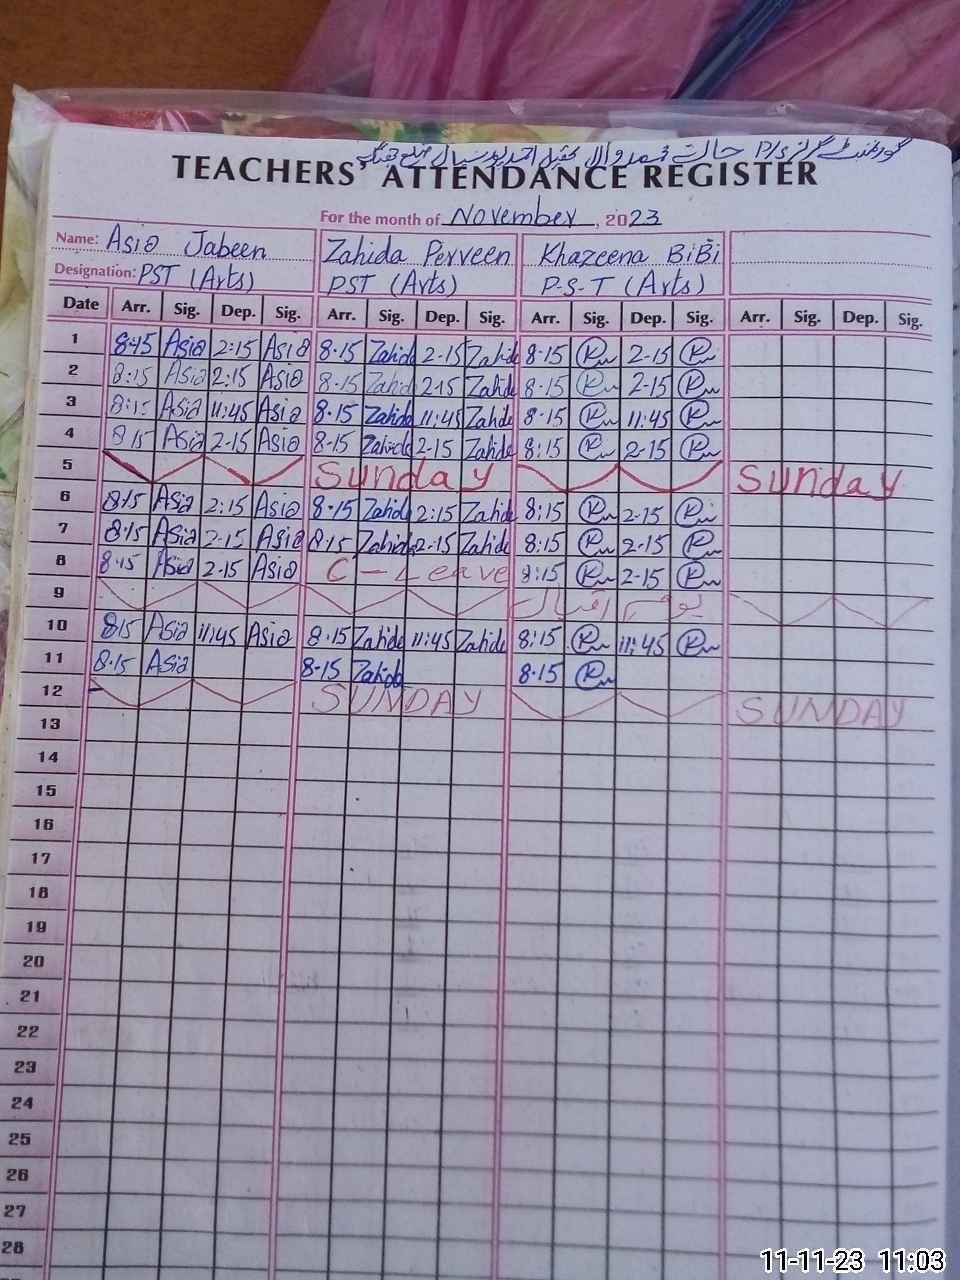 گورنمنٹ گرلز P/S حالت محمد والی تحصیل احمد پور سیال ضلع جھنگ
TEACHERS' ATTENDANCE REGISTER
For the month of November, 2023
Name: Asia Jabeen Zahida Perveen Khazeena BiBi
Designation: PST (Arts) PST (Arts) P-S-T (Arts)
Date Arr. Sig. Dep. Sig. Arr. Sig. Dep. Sig. Arr. Sig. Dep. Sig. Arr. Sig. Dep. Sig.
1 8:15 Asia 2:15 Asia 8-15 Zahida 2-15 Zahida 8-15 2-15
2 8:15 Asia 2:15 Asia 8-15 Zahida 2-15 Zahida 8-15 2-15
3 8:15 Asia 11:45 Asia 8-15 Zahida 11:45 Zahida 8-15 11:45
4 8 15 Asia 2-15 Asia 8-15 Zahida 2-15 Zahida 8:15 2-15
5 Sunday Sunday
6 8:15 Asia 2:15 Asia 8-15 Zahida 2:15 Zahida 8:15 2-15
7 8:15 Asia 2-15 Asia 8-15 Zahida 2-15 Zahida 8:15 2-15
8 8-15 Asia 2-15 Asia C - Leave 8:15 2-15
9 یوم اقبال
10 8:15 Asia 11:45 Asia 8-15 Zahida 11:45 Zahida 8:15 11:45
11 8-15 Asia 8-15 Zahida 8-15
12 SUNDAY SUNDAY
13
14
15
16
17
18
19
20
21
22
23
24
25
26
27
28
11-11-23 11:03